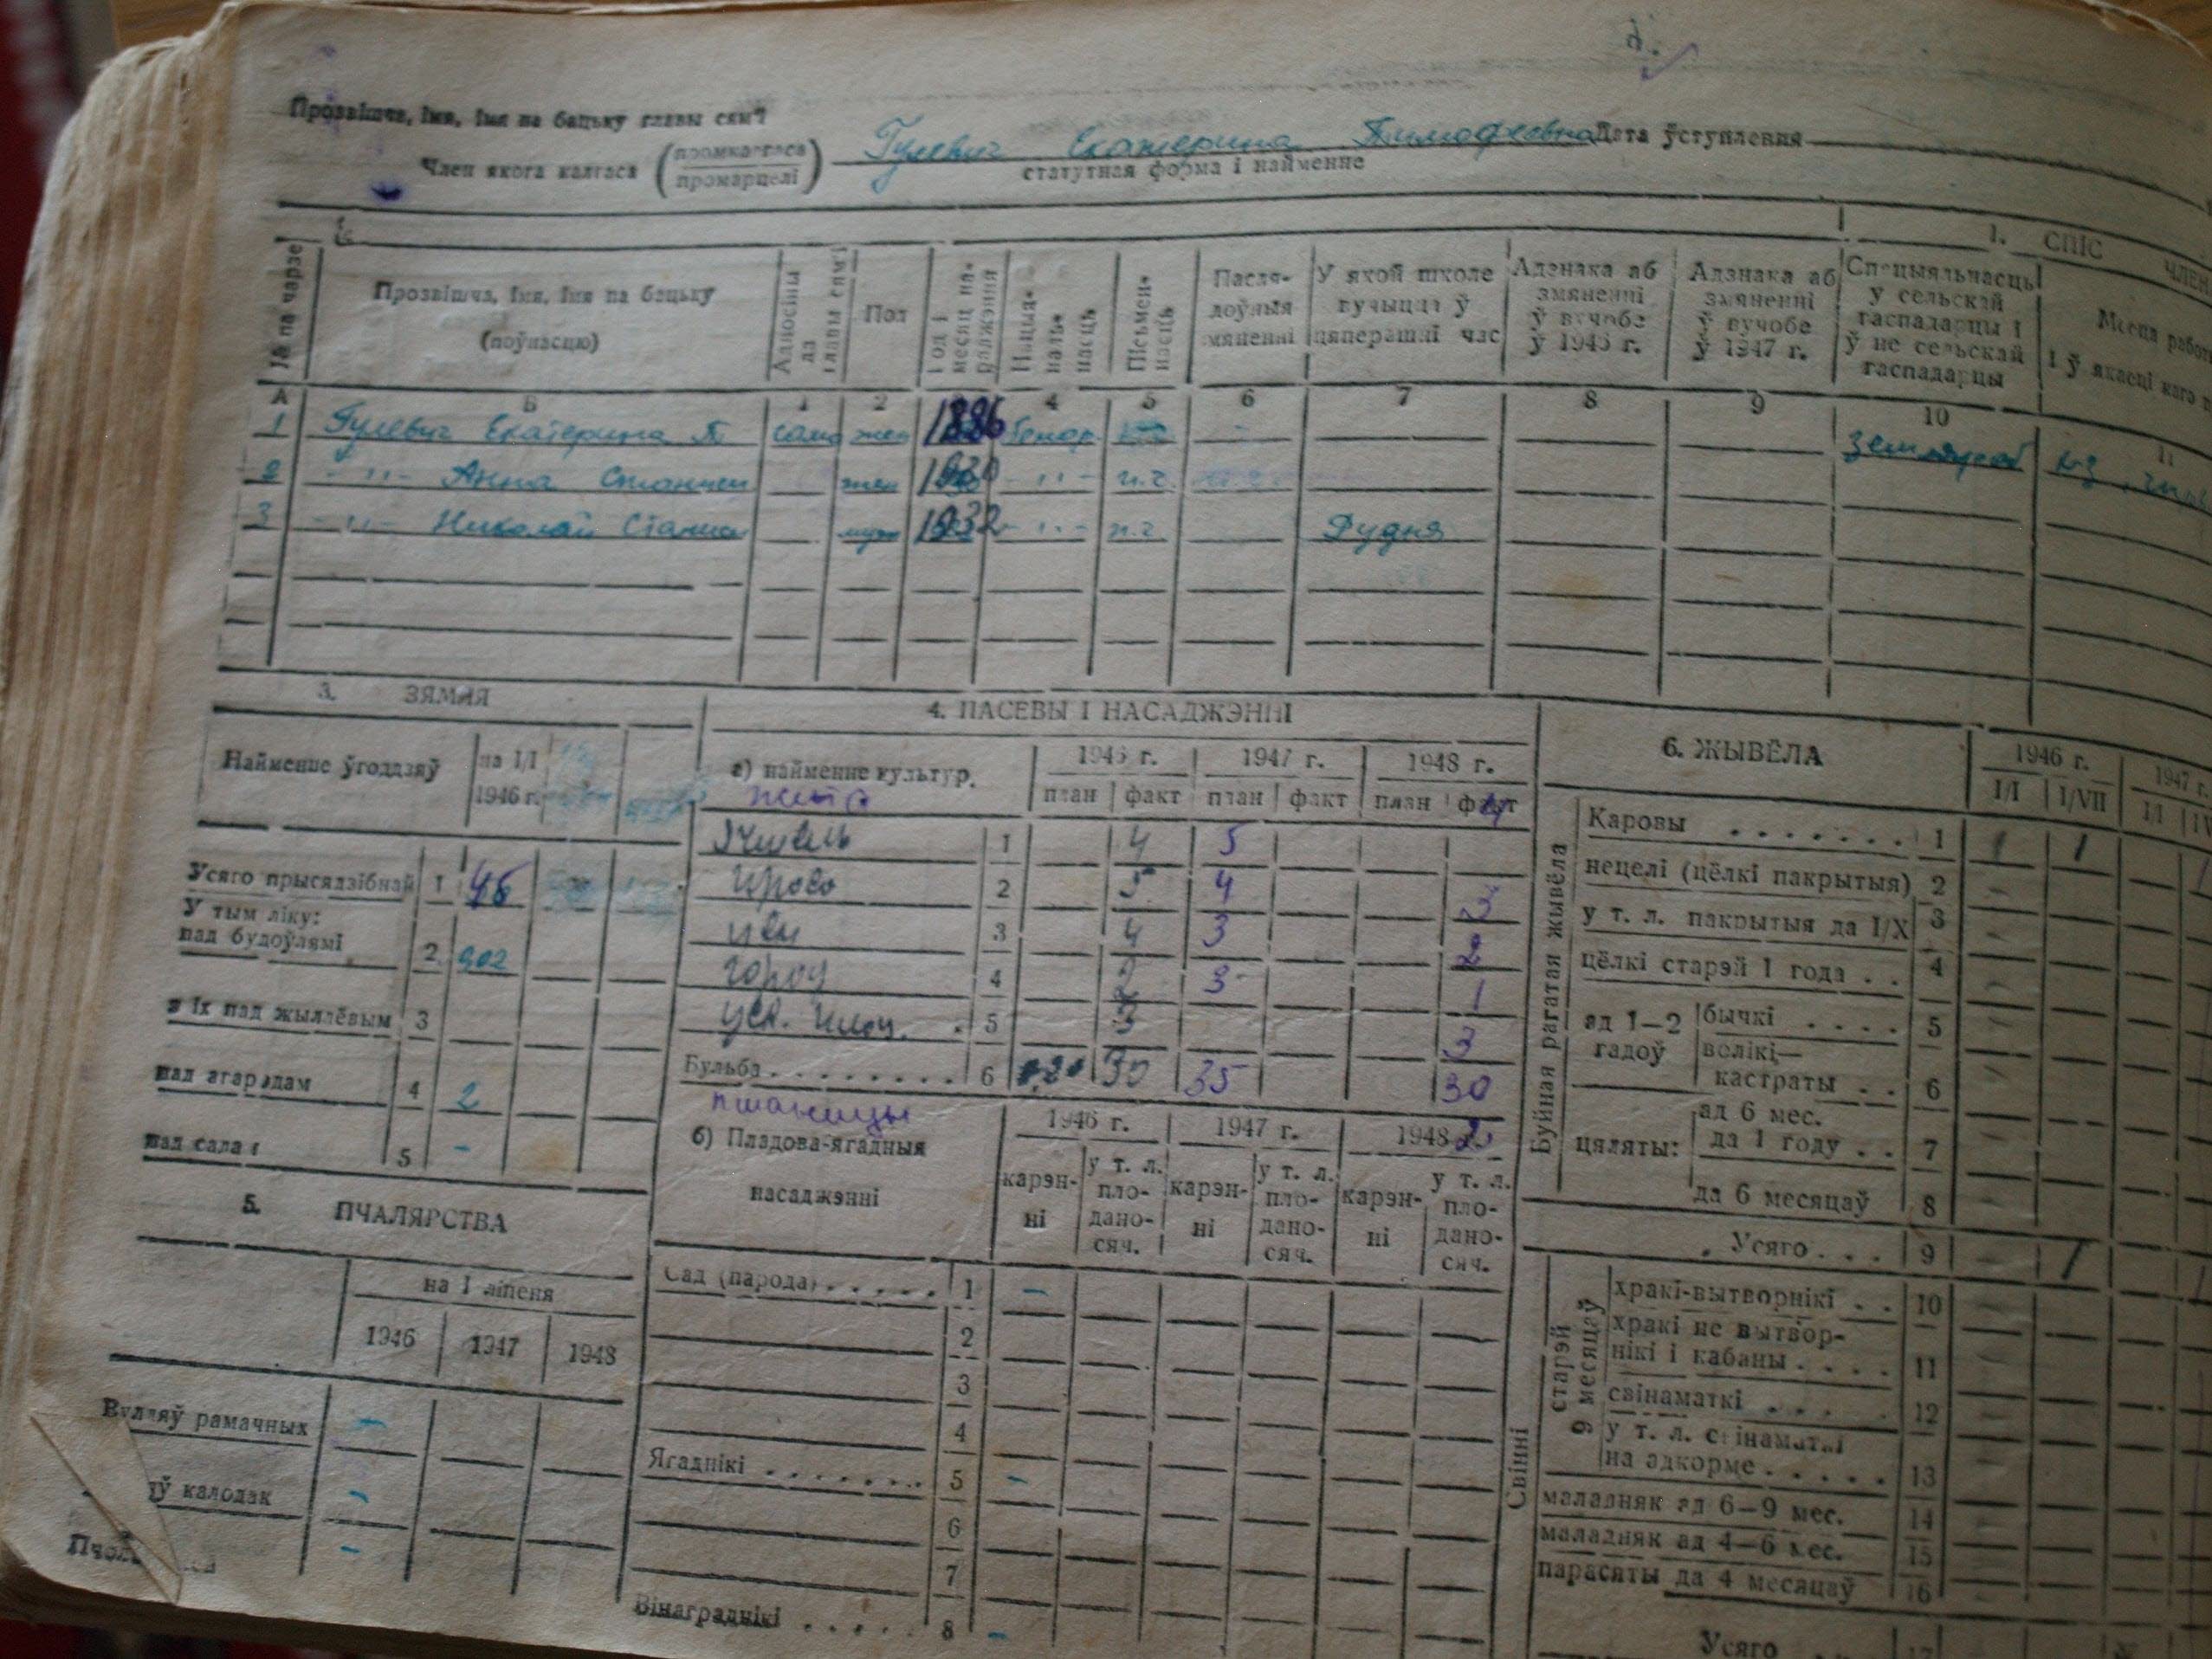 Прозвішча, імя, імя па бацьку главы сям'і
Гулевич Екатерина Тимофеевна Дата ўступлення
Член якога калгаса (промкалгаса промарцелі)
статутная форма і найменне
1. СПІС ЧЛЕН
№ па чарзе
Прозвішча, імя, імя па бацьку (поўнасцю)
Адносіны да главы сям'і
Пол
Год і месяц нараджэння
Нацыянальнасць
Пісьменнасць
Паслядоўныя змяненні
У якой школе вучыцца ў цяперашні час
Адзнака аб змяненні ў вучобе ў 1946 г.
Адзнака аб змяненні ў вучобе ў 1947 г.
Спецыяльнасць у сельскай гаспадарцы і ў не сельскай гаспадарцы
Месца работы і ў якасці каго
А Б 1 2 4 5 6 7 8 9 10 11
1 Гулевич Екатерина Т сама жен 1886 белор. - земляроб к-з
2 -"- Анна жен 1930 -"- п.г.
3 -"- Николай Станис муж 1932 -"- п.г. Рудня
3. ЗЯМЛЯ
Найменне ўгоддзяў на 1/I 1946 г.
Усяго прысядзібнай 1 46
У тым ліку:
пад будоўлямі 2 902
з іх пад жыллёвым 3
пад агародам 4 2
пад садам 5 -
4. ПАСЕВЫ І НАСАДЖЭННІ
а) найменне культур. 1946 г. 1947 г. 1948 г.
жита план факт план факт план факт 4
Ячмень 1 4 5
просо 2 5 4 3
3 4 3 2
город 4 2 3 1
5 3 3
Бульба 6 30 35 30
пшаницы 2
б) Пладова-ягадныя насаджэнні 1946 г. 1947 г. 1948
карэнні у т. л. пладаносяч. карэнні у т. л. пладаносяч. карэнні у т. л. пладаносяч.
Сад (парода) 1 -
2
3
4
Ягаднікі 5 -
6
7
Вінаграднікі 8 -
5. ПЧАЛЯРСТВА
на 1 ліпеня
1946 1947 1948
Вулляў рамачных -
ўў калодак -
-
6. ЖЫВЁЛА 1946 г. 1947 г.
I/I I/VII I/I
Буйная рагатая жывёла
Каровы 1 1 1
нецелі (цёлкі пакрытыя) 2 -
у т. л. пакрытыя да I/X 3 -
цёлкі старэй 1 года 4 -
ад 1—2 гадоў
бычкі 5 -
волікі—кастраты 6 -
цяляты:
ад 6 мес. да 1 году 7 -
да 6 месяцаў 8 -
Усяго 9 - 1
Свінні
старэй 9 месяцаў
хракі-вытворнікі 10 -
хракі не вытворнікі і кабаны 11 -
свінаматкі 12 -
у т. л. свінаматкі на адкорме 13 -
маладняк ад 6—9 мес. 14 -
маладняк ад 4—6 мес. 15 -
парасяты да 4 месяцаў 16 -
Усяго 17